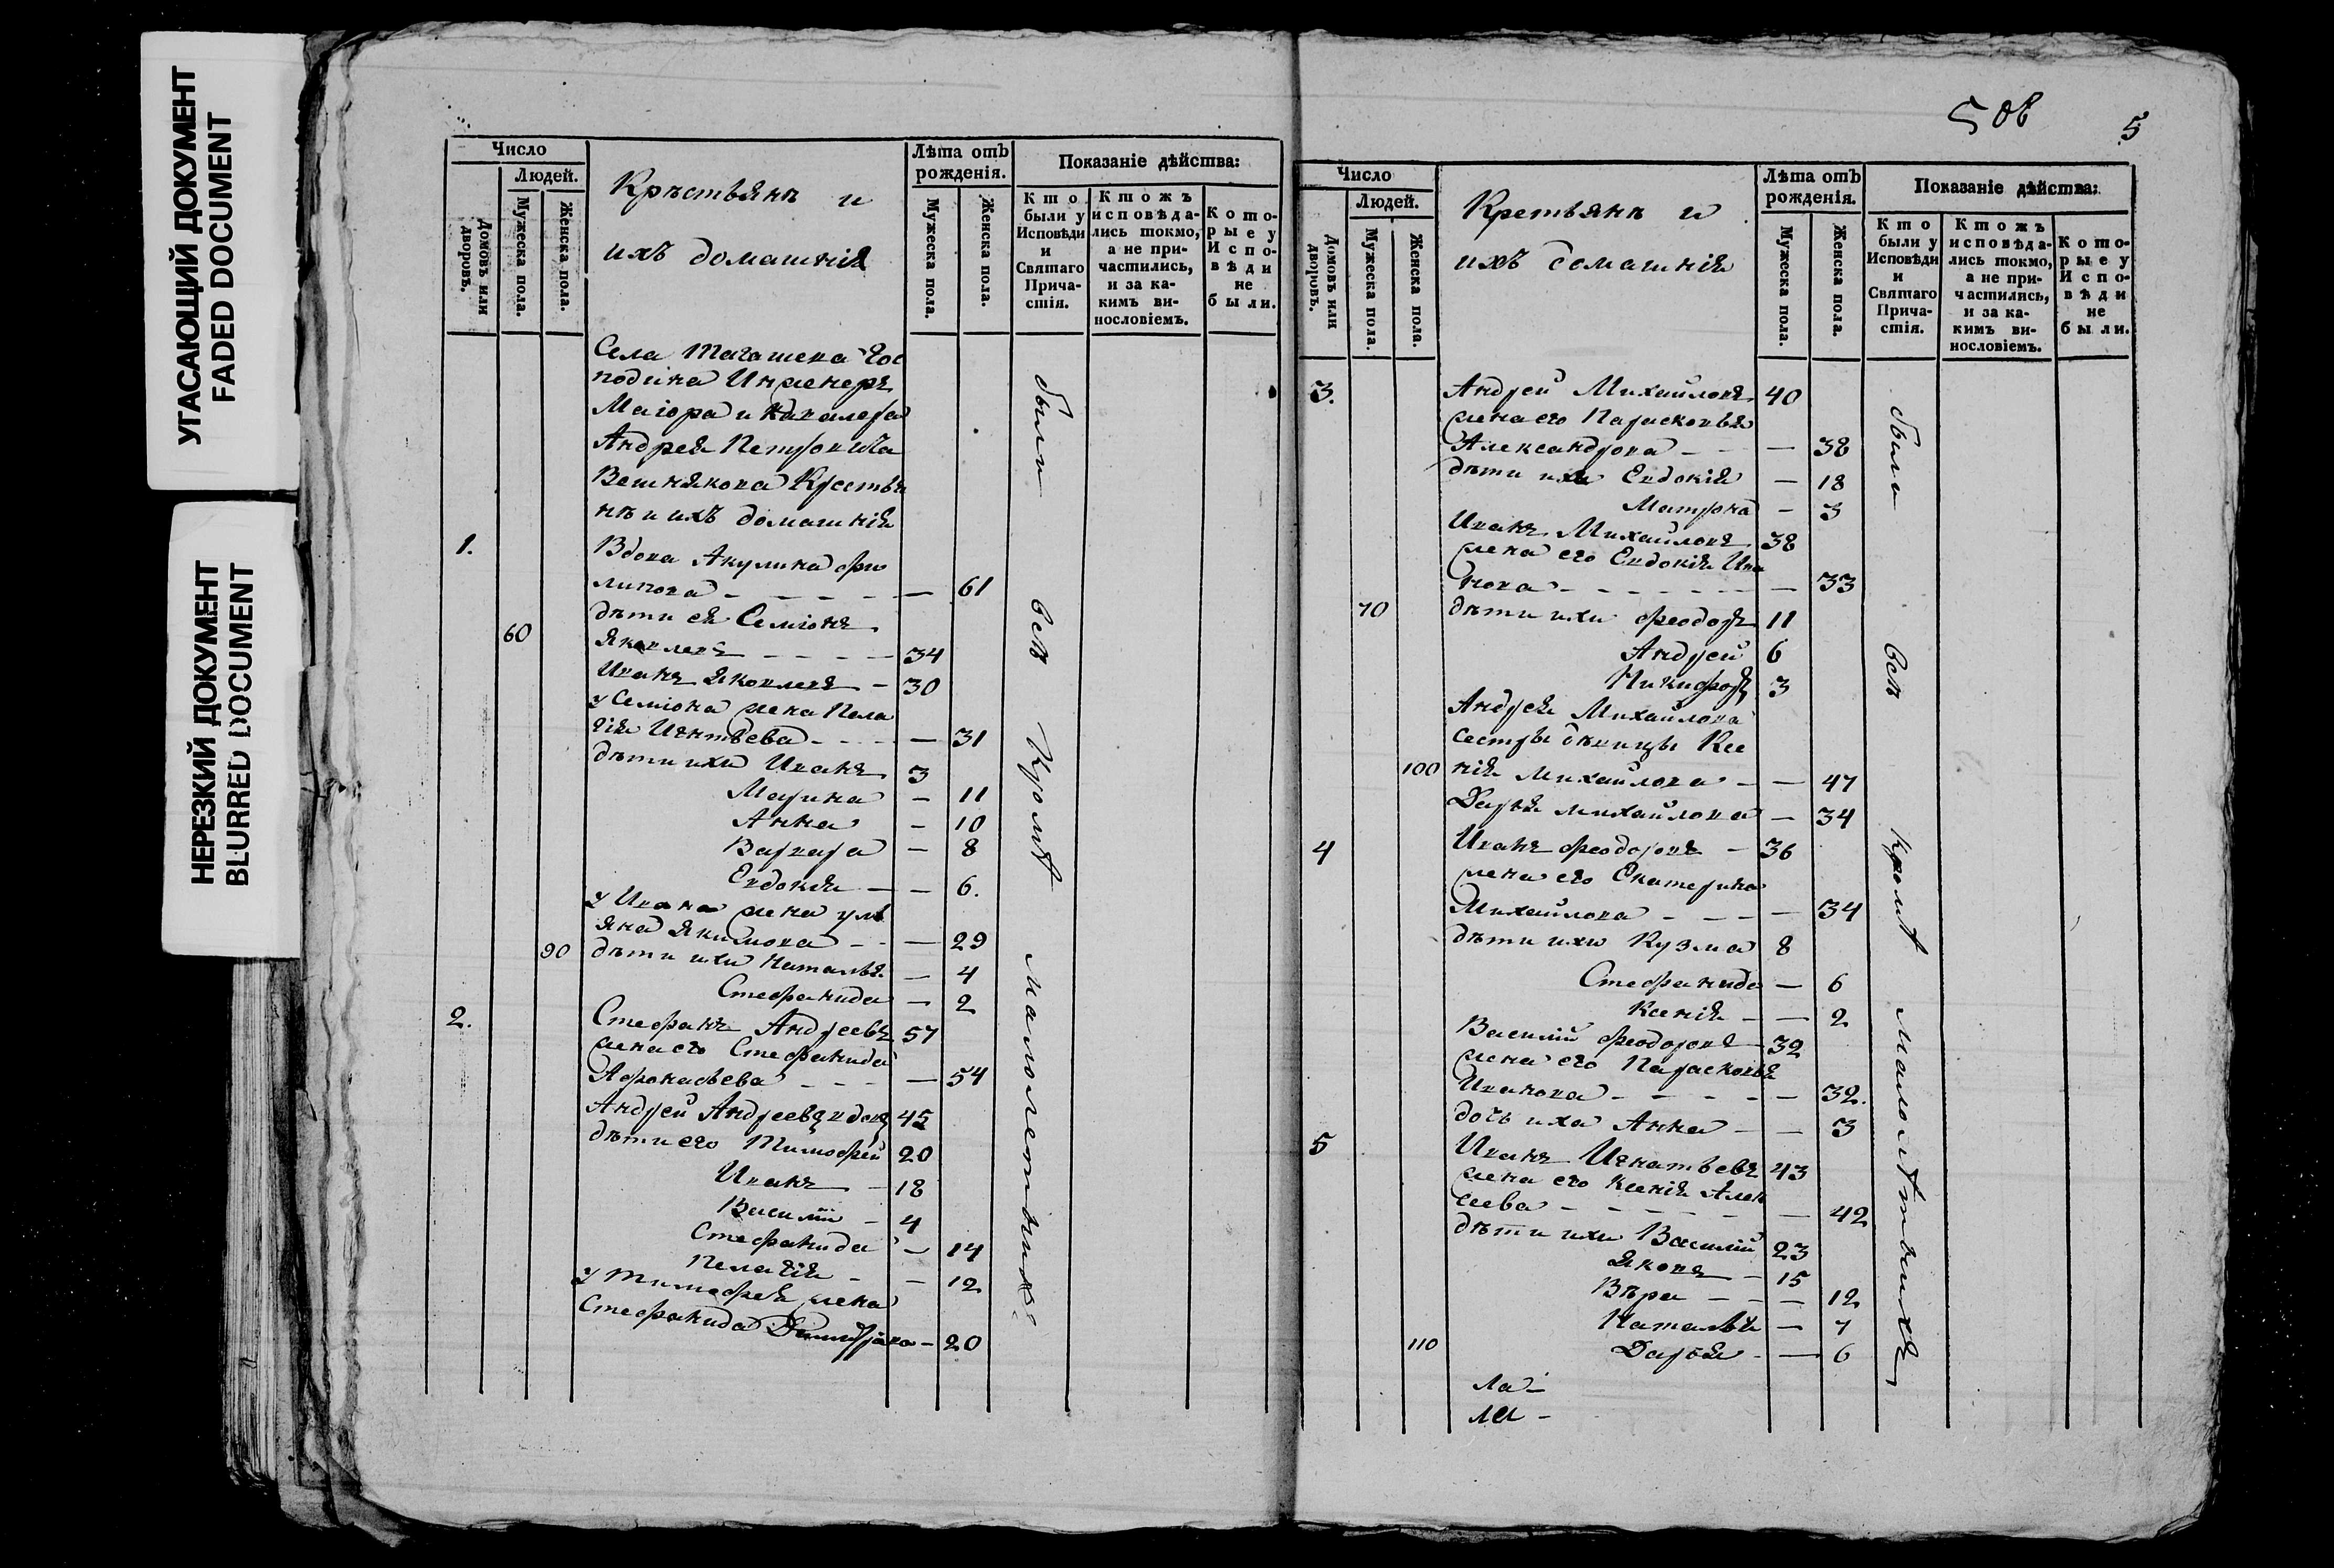 УГАСАЮЩИЙ ДОКУМЕНТ
FADED DOCUMENT
НЕРЕЗКИЙ ДОКУМЕНТ
BLURRED DOCUMENT
Число
Людей.
Домовъ или дворовъ.
Мужеска пола.
Женска пола.
Крѣстьянъ и
ихъ домашнія
Лѣта отъ рожденія.
Мужеска пола.
Женска пола.
Показаніе дѣйства:
Кто были у Исповѣди и Святаго Причастія.
Ктожъ исповѣдались токмо, а не причастились, и за какимъ винословіемъ.
Которые у Исповѣди не были.
Села Тагашева Гос
подина Инженеръ
Маіора и Кавалера
Андрея Петровича
Вешнякова Крестья
нъ и ихъ домашнія
1. Вдова Акулина Фи
липова — 61
дѣти ея Семіонъ
60 Яковлевъ — 34
Иванъ Яковлевъ — 30
у Семіона жена Пела
гія Игнтьева — 31
дѣти ихъ Иванъ 3
Марина — 11
Анна — 10
Варвара — 8
Евдокія — 6.
у Ивана жена Улі
яна Якимова — 29
90 дѣти ихъ Наталья — 4
Стефанида — 2
2. Стефанъ Андреевъ 57
жена его Стефанида
Афонасьева — 54
Андрей Андреевъ вдовъ 45
дѣти его Тимофей 20
Иванъ — 18
Василій — 4
Стефанида — 14
Пелагія — 12
у Тимофея жена
Стефанида — 20
были всѣ Кромѣ малолетнихъ
508
5
Число
Людей.
Домовъ или дворовъ.
Мужеска пола.
Женска пола.
Кретьянъ и
ихъ домашнія
Лѣта отъ рожденія.
Мужеска пола.
Женска пола.
Показаніе дѣйства:
Кто были у Исповѣди и Святаго Причастія.
Ктожъ исповѣдались токмо, а не причастились, и за какимъ винословіемъ.
Которые у Исповѣди не были.
3. Андрей Михайловъ 40
жена его Парасковья
Александрова — 38
дѣти ихъ Евдокія — 18
Матрона — 3
Иванъ Михайловъ 38
жена его Евдокія Ива
нова — 33
70 дѣти ихъ Феодоръ 11
Андрей 6
Никифоръ 3
Андрея Михайлова
сестры дѣвицы Ксе
100 нія Михайлова — 47
Дарья Михайлова — 34
4 Иванъ Феодоровъ — 36
жена его Екатерина
Михайлова — 34
дѣти ихъ Кузма 8
Стефанида — 6
Ксенія — 2
Василій Феодоровъ — 32
жена его Парасковья
Иванова — 32.
дочь ихъ Анна — 3
5 Иванъ Игнатьевъ 43
жена его Ксенія Алек
сеева — 42
дѣти ихъ Василій 23
Яковъ — 15
Вѣра — 12
Наталья — 7
110 Дарья — 6
были всѣ Кромѣ Малолѣтныхъ